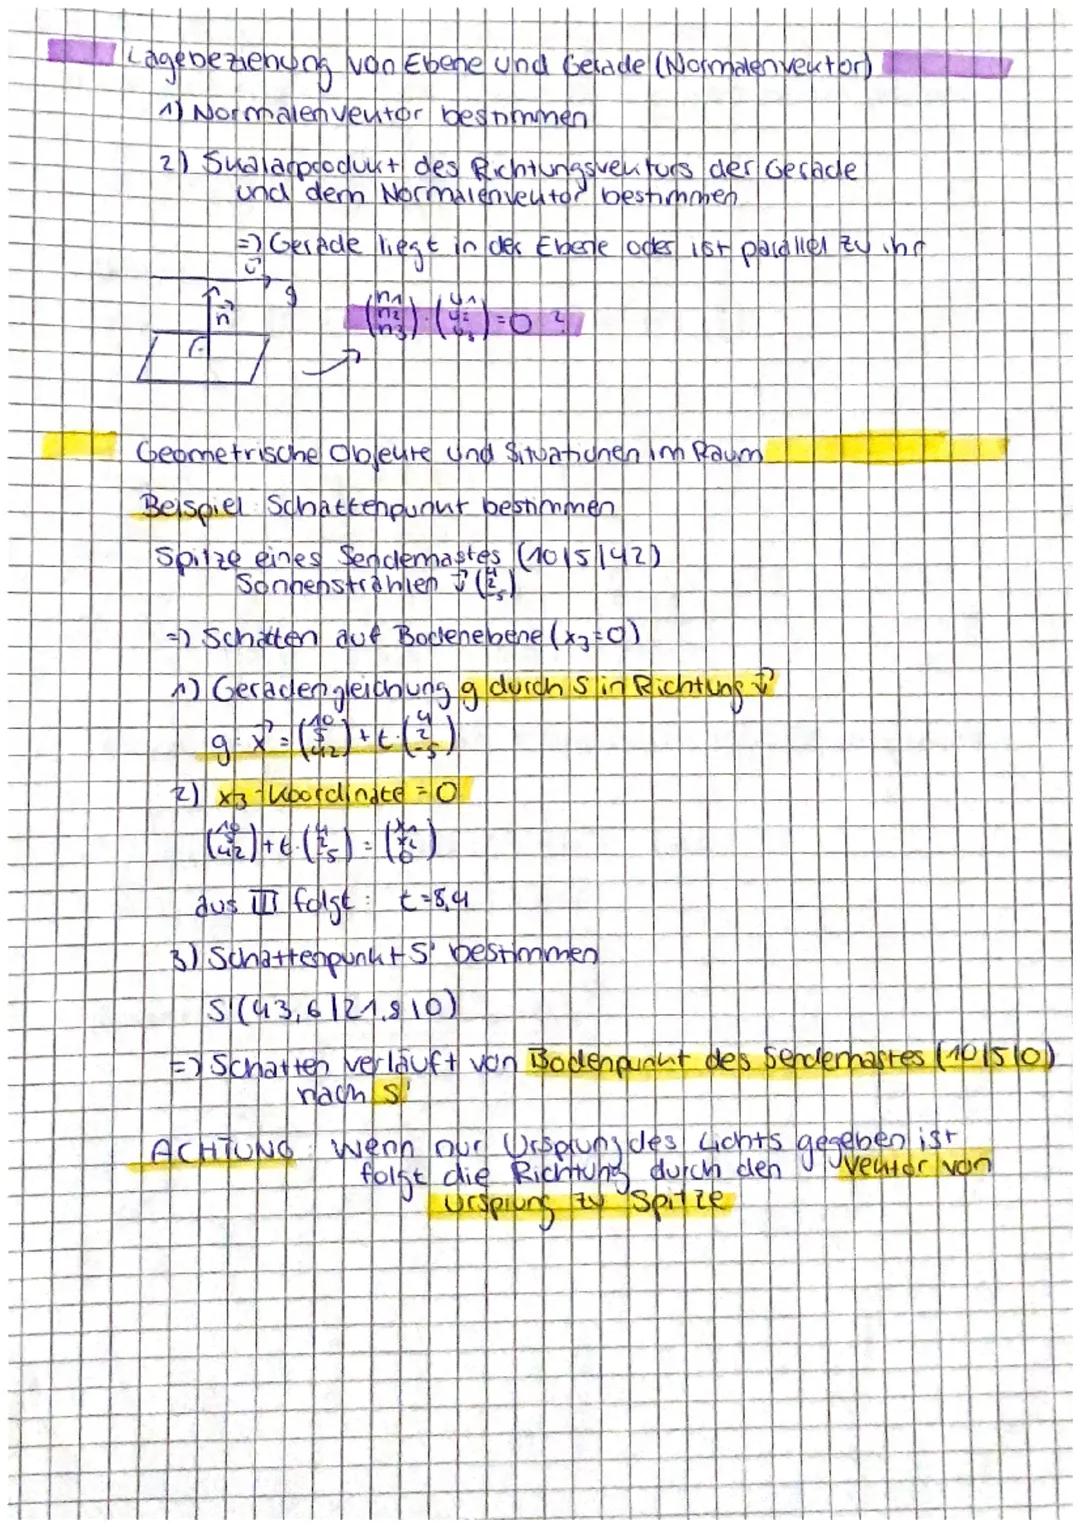 Lagebeziehung von Ebene und Gerade (Normalenvektor)
1) Normalenvektor bestimmen
2) Skalarprodukt des Richtungsvektors der Gerade
und dem Normalenvektor bestimmen
=> Gerade liegt in der Ebene oder ist parallel zu ihr
u⃗
g
n⃗
(n1 n2 n3) · (u1 u2 u3) = 0 ?
Geometrische Objekte und Situationen im Raum
Beispiel: Schattenpunkt bestimmen
Spitze eines Sendemastes (10|5|42)
Sonnenstrahlen v⃗ (4 2 -5)
=> Schatten auf Bodenebene (x3=0)
1) Geradengleichung g durch S in Richtung v⃗
g: x⃗ = (10 5 42) + t · (4 2 -5)
2) x3-Koordinate = 0
(10 5 42) + t · (4 2 -5) = (x1 x2 0)
aus III folgt: t=8,4
3) Schattenpunkt S' bestimmen
S'(43,6|21,8|0)
=> Schatten verläuft von Bodenpunkt des Sendemastes (10|5|0)
nach S'
ACHTUNG: Wenn nur Ursprung des Lichts gegeben ist
folgt die Richtung durch den Vektor von
Ursprung zu Spitze